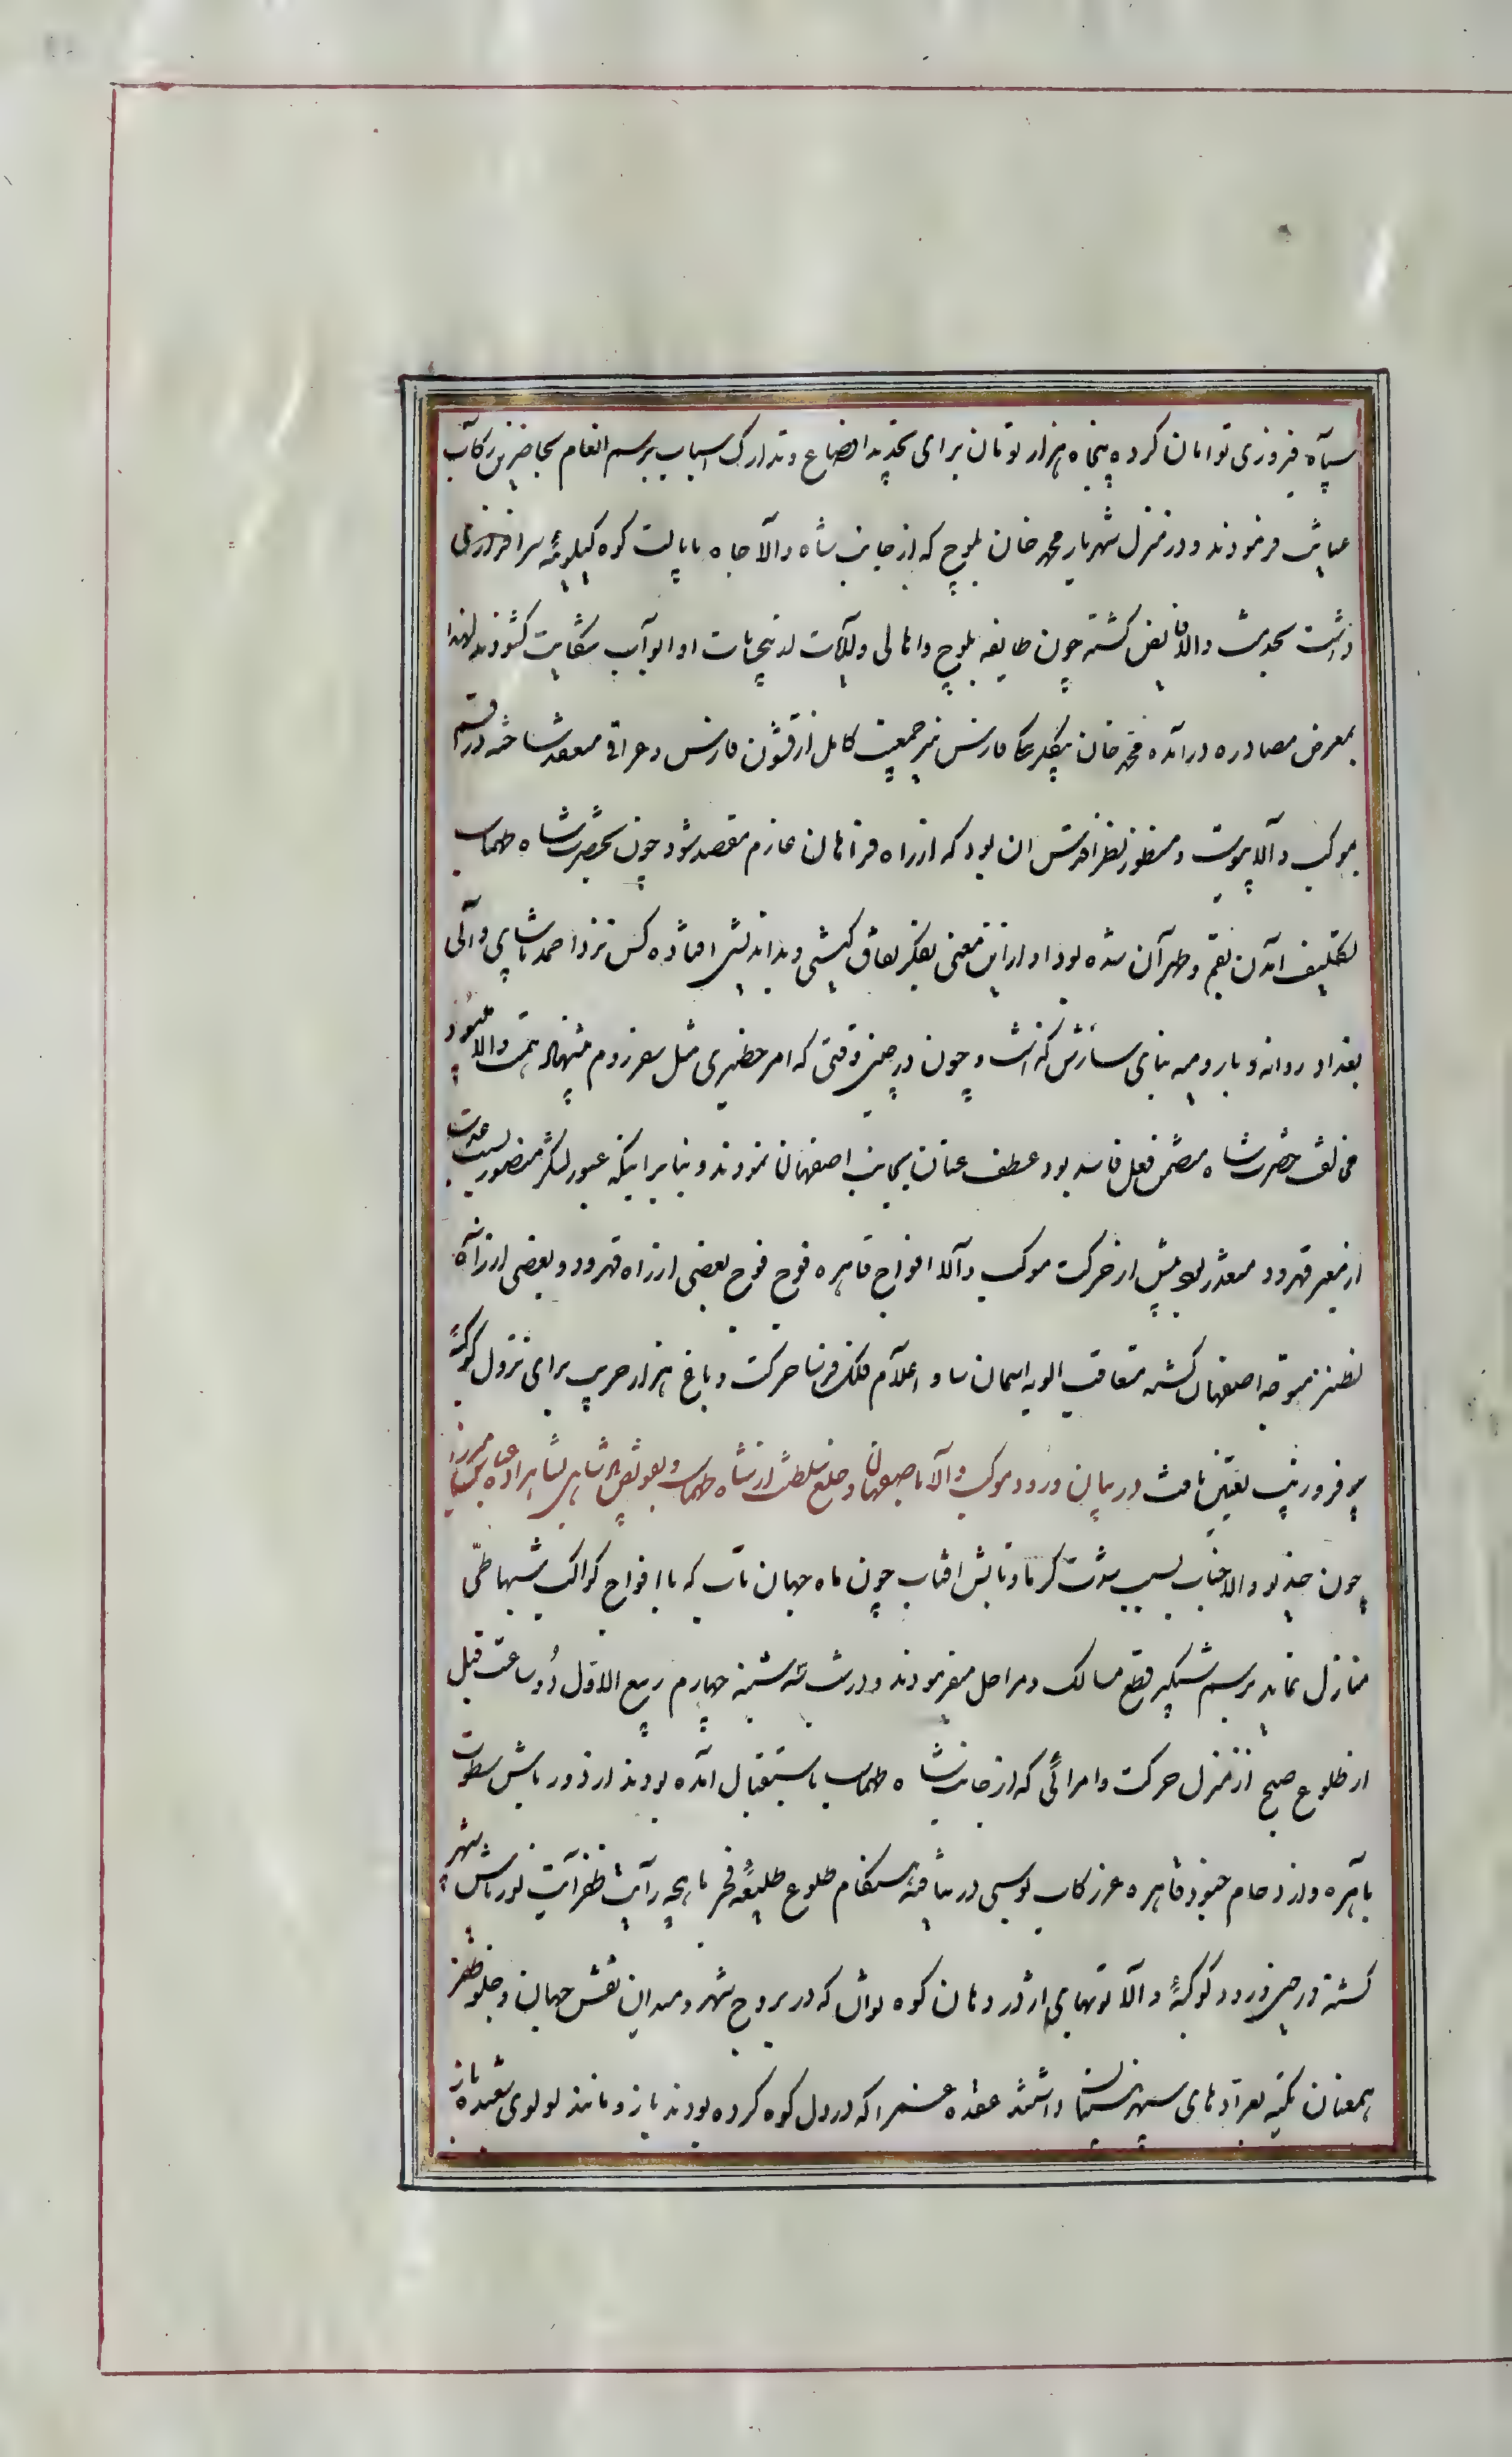 سپاه فیروزی توامان کرده پنجاه هزار تومان برای تجدید اوضاع و تدارک اسباب برسم انعام بحاضرین رکاب
عنایت فرمودند و در منزل شهریار محمد خان بلوچ که از جانب شاه والا جاه بایالت کوه کیلویه سرافرازی
داشت بخدمت والا فایض کشته چون طایفه بلوچ و اهالی ولایات از تیجات او ابواب شکایت کشودند لهذا
بمعرض مصادره درآمده محمد خان بیکلربیکی فارس نیز جمعیت کامل از قشون فارس و عراق منعقد ساخته در قم
بموکب والا پیوست و منظور نظر اقدس ان بود که از راه فراهان عازم مقصد شود چون بحضرت شاه طهماسب
تکلیف امدن بقم و طهران شده بود او از این معنی بفکر نفاق کیشی و بداندیشی افتاده کس نزد احمد پاشای والی
بغداد روانه و با رومیه بنای سازش کذاشت و چون در چنین وقتی که امر خطیری مثل سفر روم پیشنهاد همت والا بود
مخالفت حضرت شاه متضمن فعل فاسد بود عطف عنان بجانب اصفهان نمودند و بنابر اینکه عبور لشکر منصور بسبب عدت
از معبر قهرود متعذر بود پیش از حرکت موکب والا افواج قاهره فوج فوج بعضی از راه قهرود و بعضی از راه
نطنز متوجه اصفهان کشته متعاقب الویه اسمان سا و اعلام فلک فرسا حرکت و باغ هزار جریب برای نزول کوکبه
پیروزی تعیین یافت در بیان ورود موکب والا باصفهان و خلع سلطنت از شاه طهماسب و تفویض شاهی بشاهزاده عباس میرزا
چون خدیو والا جناب بسبب شدت کرما و تابش افتاب چون ماه جهان تاب که با افواج کواکب شبها طی
منازل نماید برسم شبکیر قطع مسالک و مراحل میفرمودند و در شب سه شنبه چهارم ربیع الاول دو ساعت قبل
از طلوع صبح از منزل حرکت و امرائی که از جانب شاه طهماسب باستقبال امده بودند از دورباش سطوت
باهره و از دحام جنود قاهره عز رکاب بوسی درنیافته هنکام طلوع طلیعه فجر ماهچه رایت ظفر آیت نورپاش شهر
کشته در حین ورود کوکبه والا توپهای اژدر دهان کوه توان که در بروج شهر و میدان نقش جهان و جلو ظفر
همعنان تکیه بعرادهای سپهر نشان داشتند عقده عنبر را که در دل کوه کرده بودند باز و مانند لولوی شعبده باز